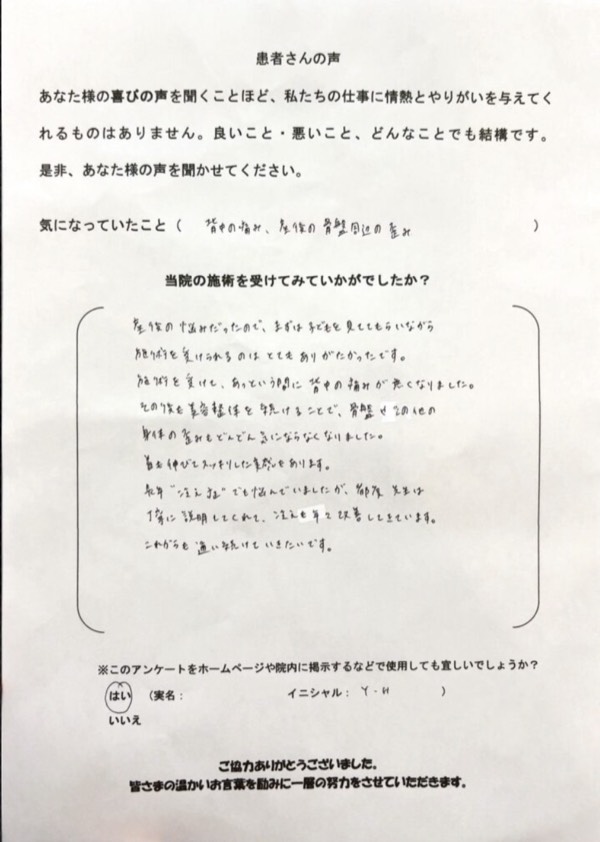 患者さんの声
あなた様の喜びの声を聞くことほど、私たちの仕事に情熱とやりがいを与えてく
れるものはありません。良いこと・悪いこと、どんなことでも結構です。
是非、あなた様の声を聞かせてください。
気になっていたこと（ 背中の痛み、産後の骨盤周辺の歪み ）
当院の施術を受けてみていかがでしたか？
産後の悩みだったので、まずは子どもを見ててもらいながら
施術を受けられるのはとてもありがたかったです。
施術を受けて、あっという間に背中の痛みが無くなりました。
その後も美容整体を続けることで、骨盤やその他の
身体の歪みもどんどん気にならなくなりました。
首も伸びてスッキリした実感もあります。
長年"冷え症"でも悩んでいましたが、先生は
丁寧に説明してくれて、冷えも年々改善してきています。
これからも通い続けていきたいです。
※このアンケートをホームページや院内に掲示するなどで使用しても宜しいでしょうか？
はい （実名： イニシャル： Y・H ）
いいえ
ご協力ありがとうございました。
皆さまの温かいお言葉を励みに一層の努力をさせていただきます。